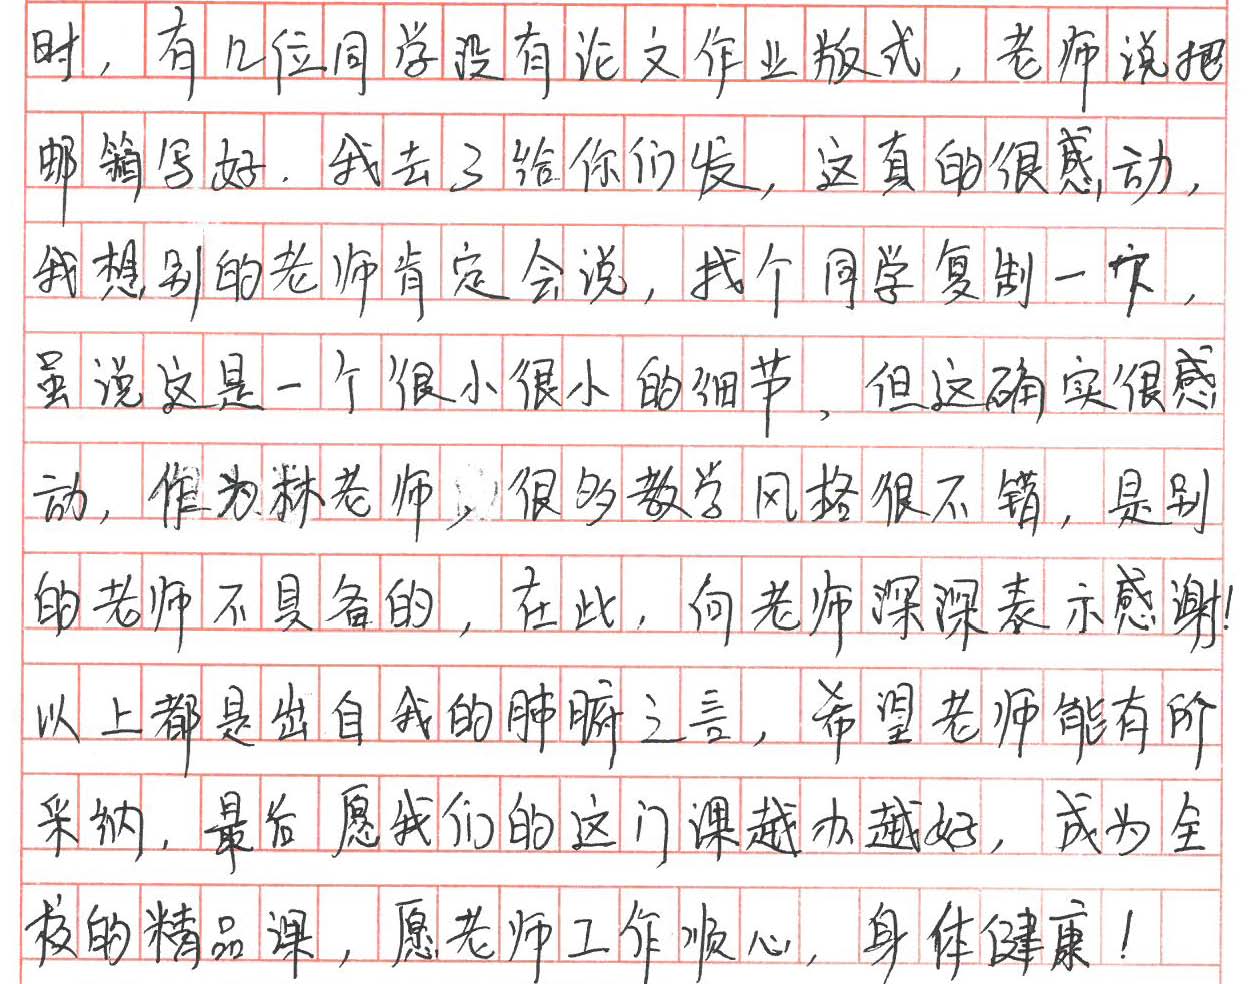 时，有几位同学没有论文作业版式，老师说把
邮箱写好．我去了给你们发，这真的很感动，
我想别的老师肯定会说，找个同学复制一下，
虽说这是一个很小很小的细节，但这确实很感
动，作为林老师，很多教学风格很不错，是别
的老师不具备的，在此，向老师深深表示感谢！
以上都是出自我的肺腑之言，希望老师能有所
采纳，最后愿我们的这门课越办越好，成为全
校的精品课，愿老师工作顺心，身体健康！